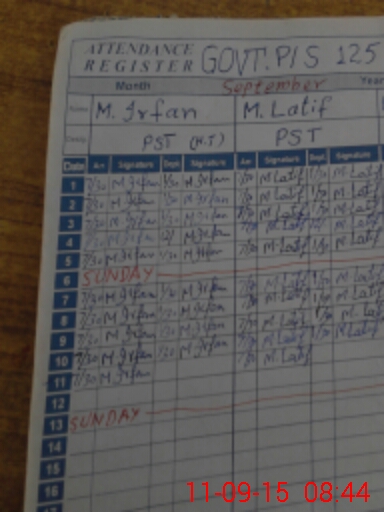 ATTENDANCE
REGISTER GOVT. P/S 125
Month September Year
Name M. Irfan M. Latif
PST (H.T) PST
Date Arr. Signature Dept. Signature Arr. Signature Dept. Signature
1 7/30 M. Irfan 1/30 M. Irfan 7/30 M Latif 1/30 M. Latif
2 7/30 M. Irfan 1/30 M. Irfan 7/30 M Latif 1/30 M. Latif
3 7/30 M. Irfan 1/30 M. Irfan 7/30 M Latif 1/30 M. Latif
4 7/30 M. Irfan 12/ M. Irfan 7/30 M. Latif 12/ M. Latif
5 7/30 M. Irfan 1/30 M. Irfan 7/30 M. Latif 1/30 M. Latif
6 SUNDAY
7 7/30 M. Irfan 1/30 M. Irfan 7/30 M Latif 1/30 M. Latif
8 7/30 M. Irfan 1/30 M. Irfan 7/30 M Latif 1/30 M. Latif
9 7/30 M. Irfan 1/30 M. Irfan 7/30 M Latif 1/30 M. Latif
10 7/30 M. Irfan 1/30 M. Irfan 7/30 M Latif 1/30 M Latif
11 7/30 M. Irfan 7/30 M Latif
12
13 SUNDAY
14
15
16
11-09-15 08:44